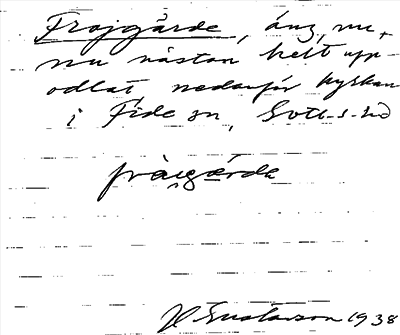 Frojgårde, äng, nu,
nu nästan helt upp-
odlat, nedanför kyrkan
i Fide sn, Gotl. s-hd
fràigārda
H Gustavson 1938